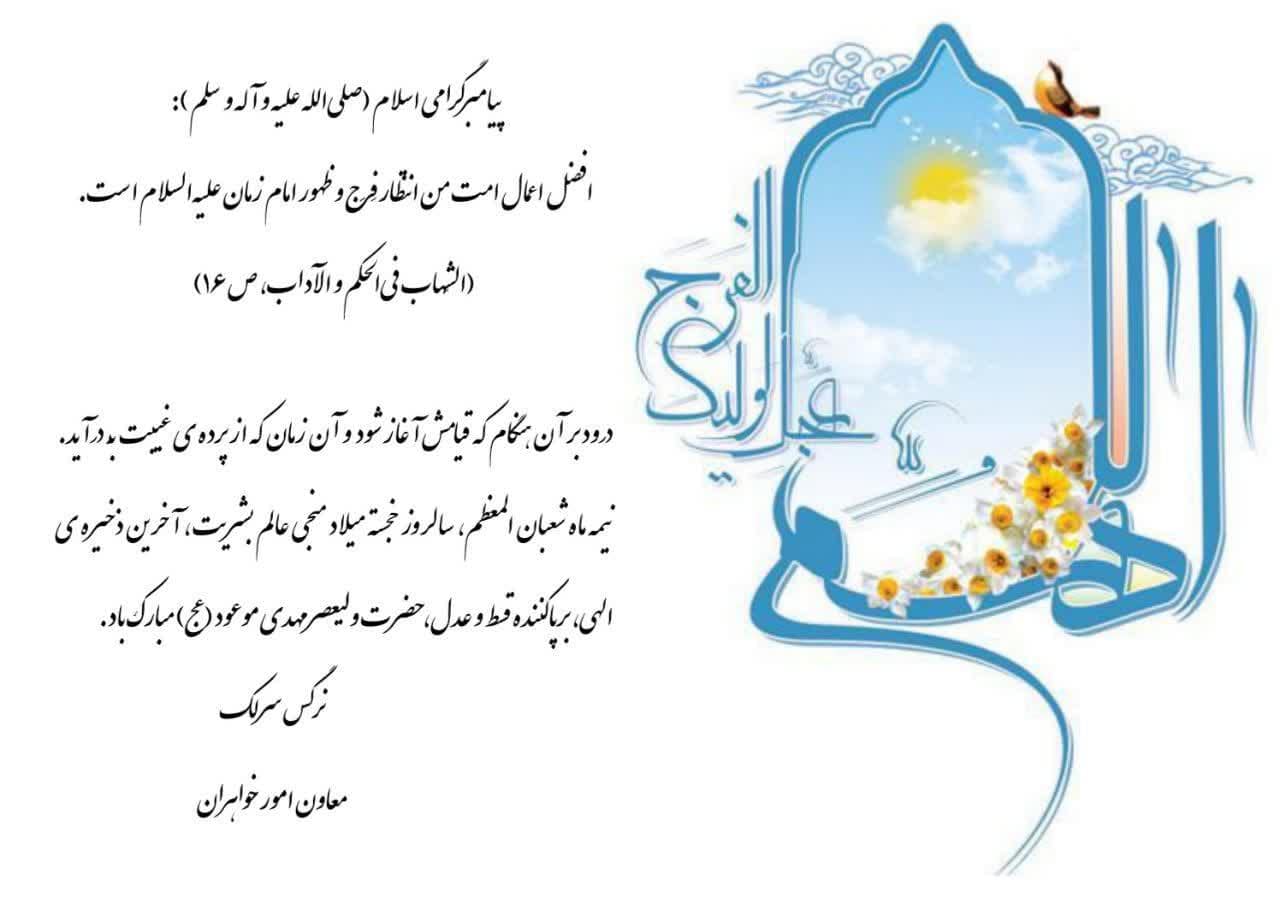 پیامبر گرامی اسلام (صلی الله علیه و آله و سلم ):
افضل اعمال امت من انتظار فرج و ظهور امام زمان علیه السلام است.
(الشهاب فی الحکم و الآداب، ص ۱۶)
درود بر آن هنگام که قیامش آغاز شود و آن زمان که از پرده ی غیبت بدر آید.
نیمه ماه شعبان المعظم، سالروز خجسته میلاد منجی عالم بشریت، آخرین ذخیره ی
الهی، برپاکننده قسط و عدل، حضرت ولیعصر مهدی موعود (عج) مبارک باد.
نرگس سرلک
معاون امور خواهران
اللهم
عجل لولیک
الفرج